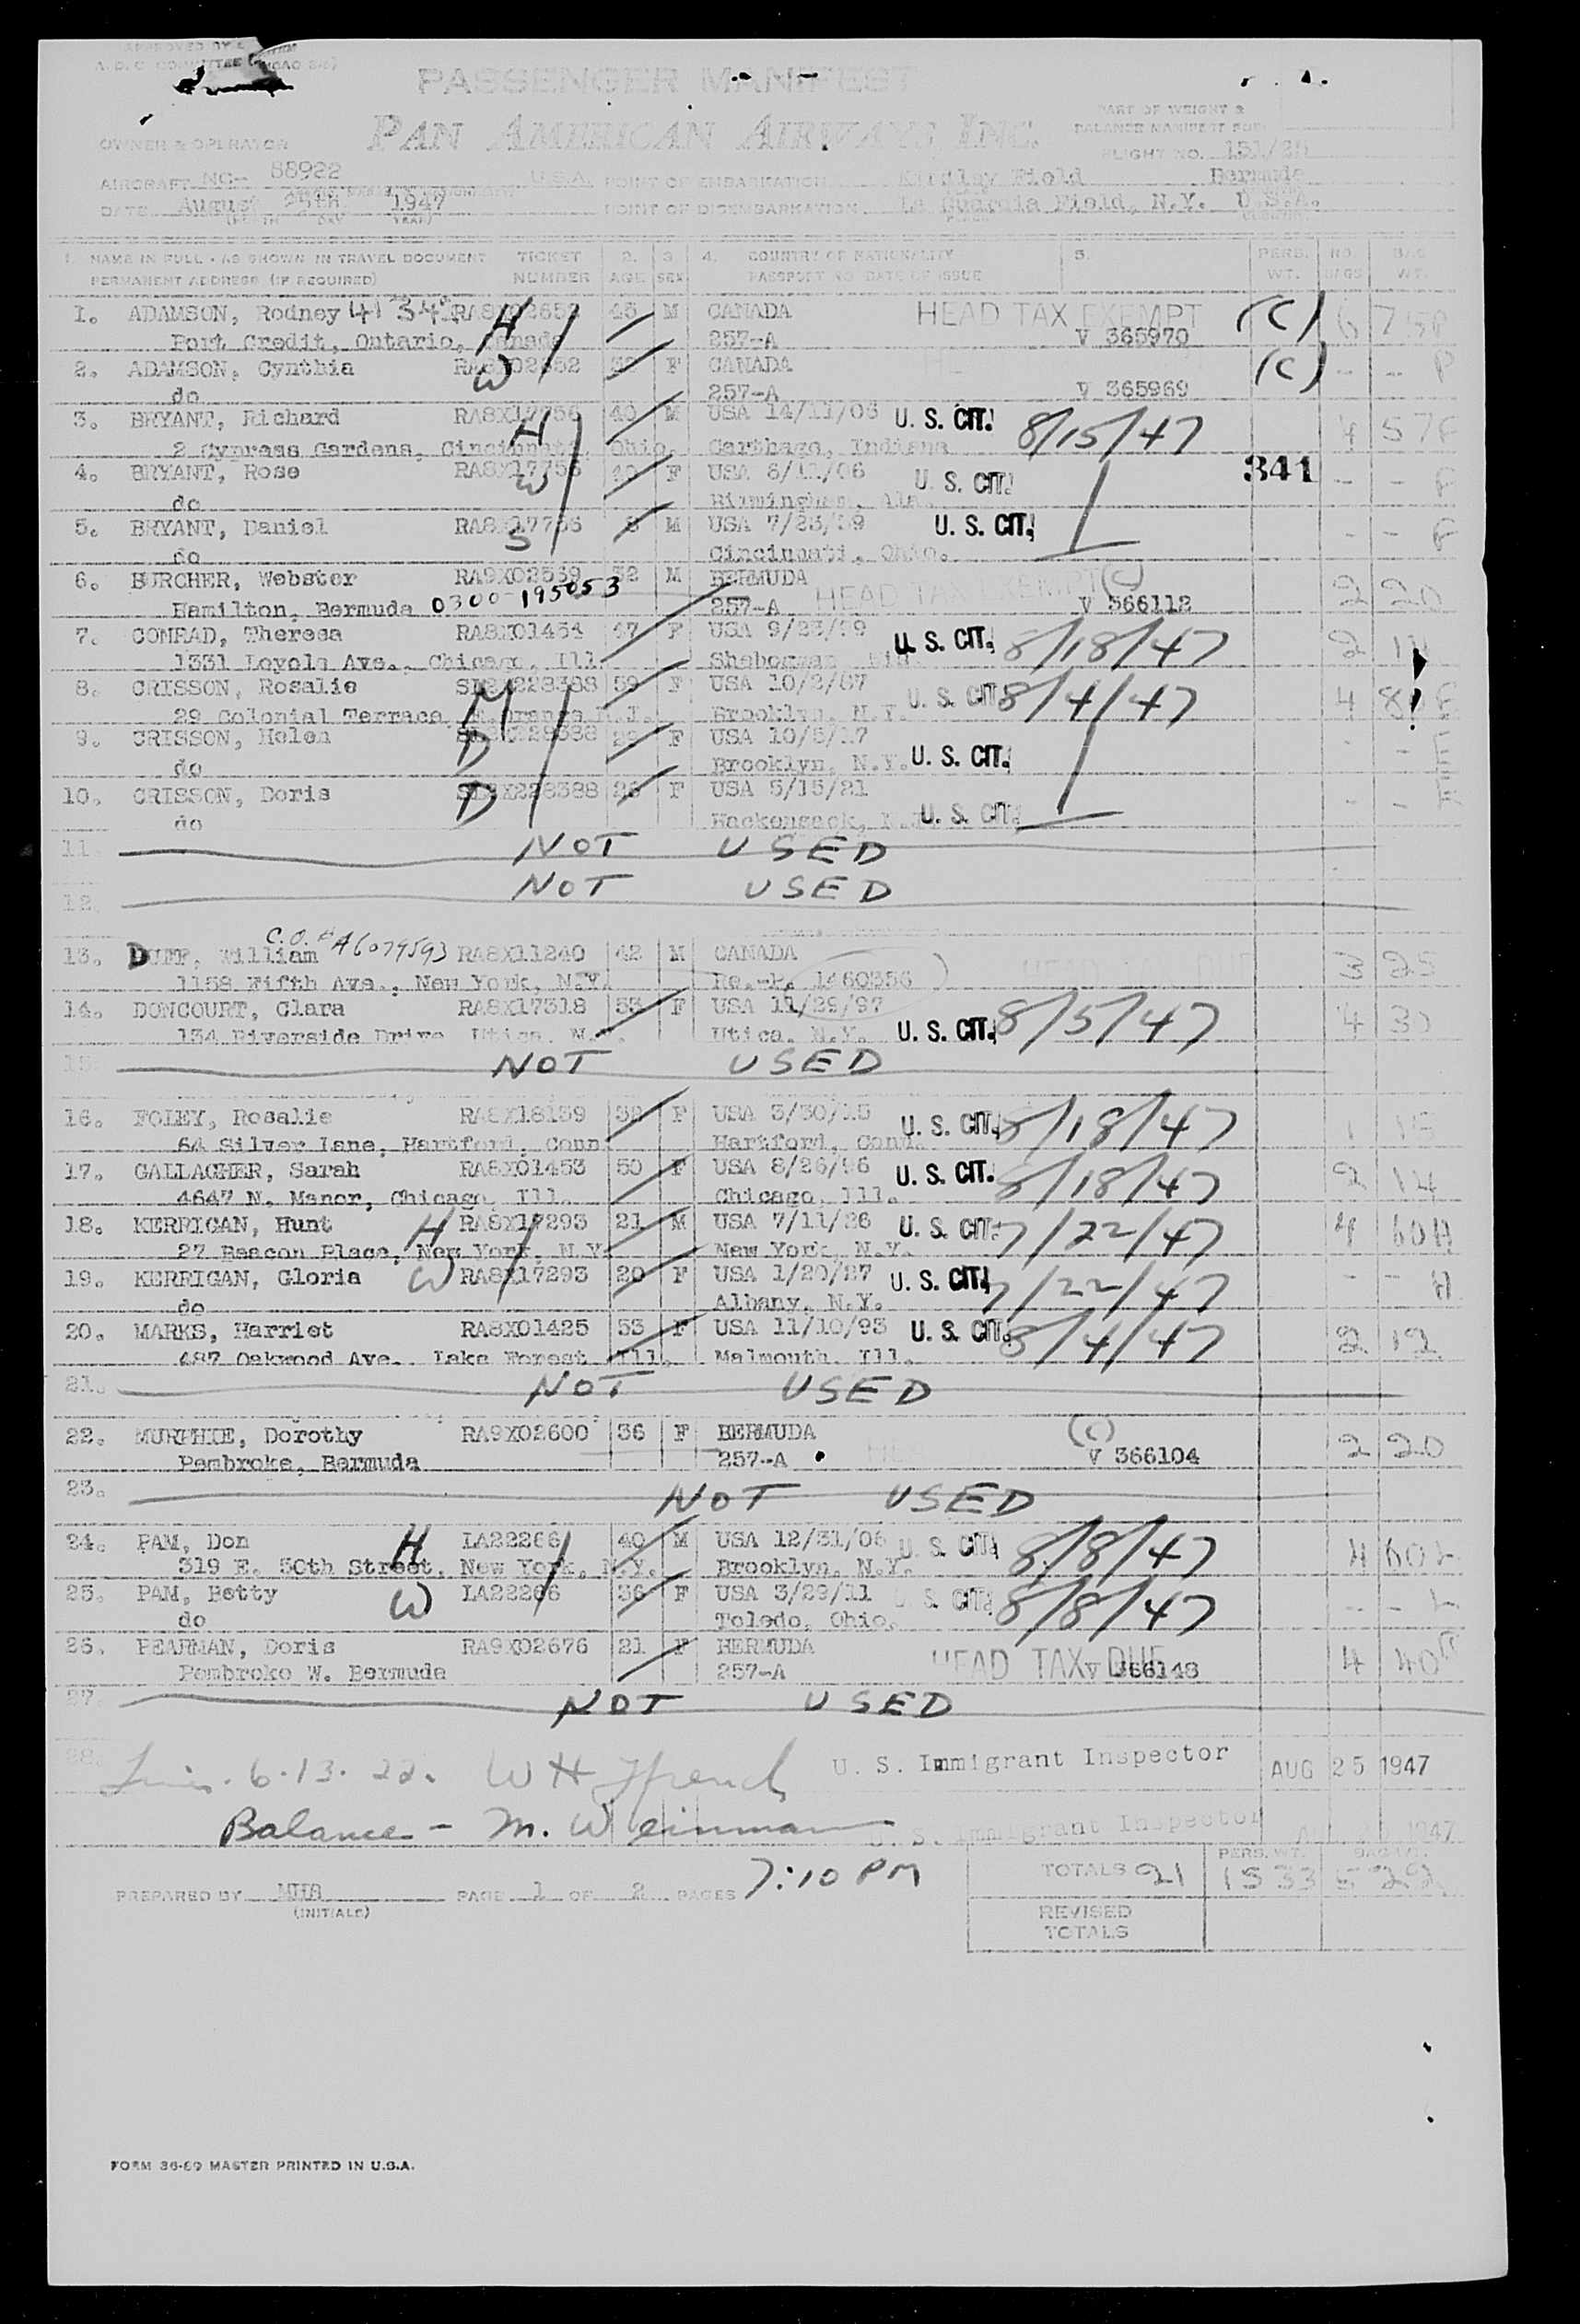 APPROVED BY
A.D.C. COMMITTEE
PASSENGER MANIFEST
PAN AMERICAN AIRWAYS, INC.
PART OF WEIGHT &
BALANCE MANIFEST FOR
OWNER & OPERATOR
FLIGHT NO. 151/25
AIRCRAFT NC- 88922 U.S.A. POINT OF EMBARKATION Kindley Field Bermuda
DATE August 25th 1947 POINT OF DISEMBARKATION La Guardia Field, N.Y. U.S.A.
(MONTH DAY YEAR)
1. NAME IN FULL - AS SHOWN IN TRAVEL DOCUMENT TICKET 2. 3. 4. COUNTRY OF NATIONALITY 5. PERS. NO. BAG
PERMANENT ADDRESS (IF REQUIRED) NUMBER AGE SEX PASSPORT NO. DATE OF ISSUE WT. BAGS WT.
1. ADAMSON, Rodney H M CANADA HEAD TAX EXEMPT (C) 6
Port Credit, Ontario, Canada 257-A V 365970
2. ADAMSON, Cynthia W F CANADA (C) - - P
do 257-A V 365969
3. BRYANT, Richard RA8X17756 H 40 M USA U. S. CIT. 8/15/47 4 57F
2 Cypress Gardens, Cincinnati, Ohio. Carthage, Indiana
4. BRYANT, Rose RA8X17756 W 40 F USA 6/11/06 U. S. CIT. 341 - - F
do Birmingham, Ala.
5. BRYANT, Daniel RA8X17756 S 8 M USA 7/23/39 U. S. CIT. - - F
do Cincinnati, Ohio.
6. BURCHER, Webster RA9X02539 32 M BERMUDA HEAD TAX EXEMPT (C) 2 20
Hamilton, Bermuda 0300-195053 257-A V 366112
7. CONRAD, Theresa RA8X01454 47 F USA 9/23/99 U. S. CIT. 8/18/47 2
1331 Loyola Ave., Chicago, Ill.
8. CRISSON, Rosalie M 59 F USA U. S. CIT 8/4/47 4
29 Colonial Terrace, E. Orange N.J. Brooklyn, N.Y.
9. CRISSON, Helen D F USA 10/5/17 U. S. CIT. - -
do Brooklyn, N.Y.
10. CRISSON, Doris D 26 F USA 5/15/21 U. S. CIT. - -
do Hackensack, N.J.
11. NOT USED
12. NOT USED
C.O. # A6079593
13. DUFF, William RA8X11240 42 M CANADA 3 25
1158 Fifth Ave., New York, N.Y. Re.-P. 1460356
14. DONCOURT, Clara RA8X17318 53 F USA 11/29/97 U. S. CIT. 8/5/47 4
134 Riverside Drive Utica, N.Y. Utica, N.Y.
15. NOT USED
16. FOLEY, Rosalie RA8X18159 F USA U. S. CIT. 8/18/47 1
64 Silver Lane, Hartford, Conn. Hartford, Conn.
17. GALLAGHER, Sarah RA8X01453 50 F USA 8/26/96 U. S. CIT. 8/18/47 2 14
4647 N. Manor, Chicago, Ill. Chicago, Ill.
18. KERRIGAN, Hunt H RA8X17293 21 M USA 7/11/26 U. S. CIT. 7/22/47 4 60H
27 Beacon Place, New York, N.Y. New York, N.Y.
19. KERRIGAN, Gloria W RA8X17293 20 F USA 1/20/27 U. S. CIT. 7/22/47 - - H
do Albany, N.Y.
20. MARKS, Harriet RA8X01425 53 F USA 11/10/93 U. S. CIT. 8/4/47 2 12
487 Oakwood Ave. Lake Forest Ill. Malmouth, Ill.
21. NOT USED
22. MURPHIE, Dorothy RA9X02600 36 F BERMUDA (C) 2 20
Pembroke, Bermuda 257-A V 366104
23. NOT USED
24. PAM, Don H LA22266 40 M USA 12/31/06 U. S. CIT. 8/8/47 4 60
319 E. 50th Street, New York, N.Y. Brooklyn, N.Y.
25. PAM, Betty W LA22266 36 F USA 3/29/11 U. S. CIT. 8/8/47 - -
do Toledo, Ohio.
26. PEARMAN, Doris RA9X02676 21 F BERMUDA HEAD TAX DUE 4 40
Pembroke W. Bermuda 257-A V 366148
27. NOT USED
28. 6-13-22. U. S. Immigrant Inspector AUG 25 1947
Balance - M. Weinman U. S. Immigrant Inspector 1947
PERS. WT. BAG WT.
TOTALS 21 1533 522
PREPARED BY MHR PAGE 1 OF 2 PAGES 7:10 PM
(INITIALS)
REVISED
TOTALS
FORM 36-69 MASTER PRINTED IN U.S.A.